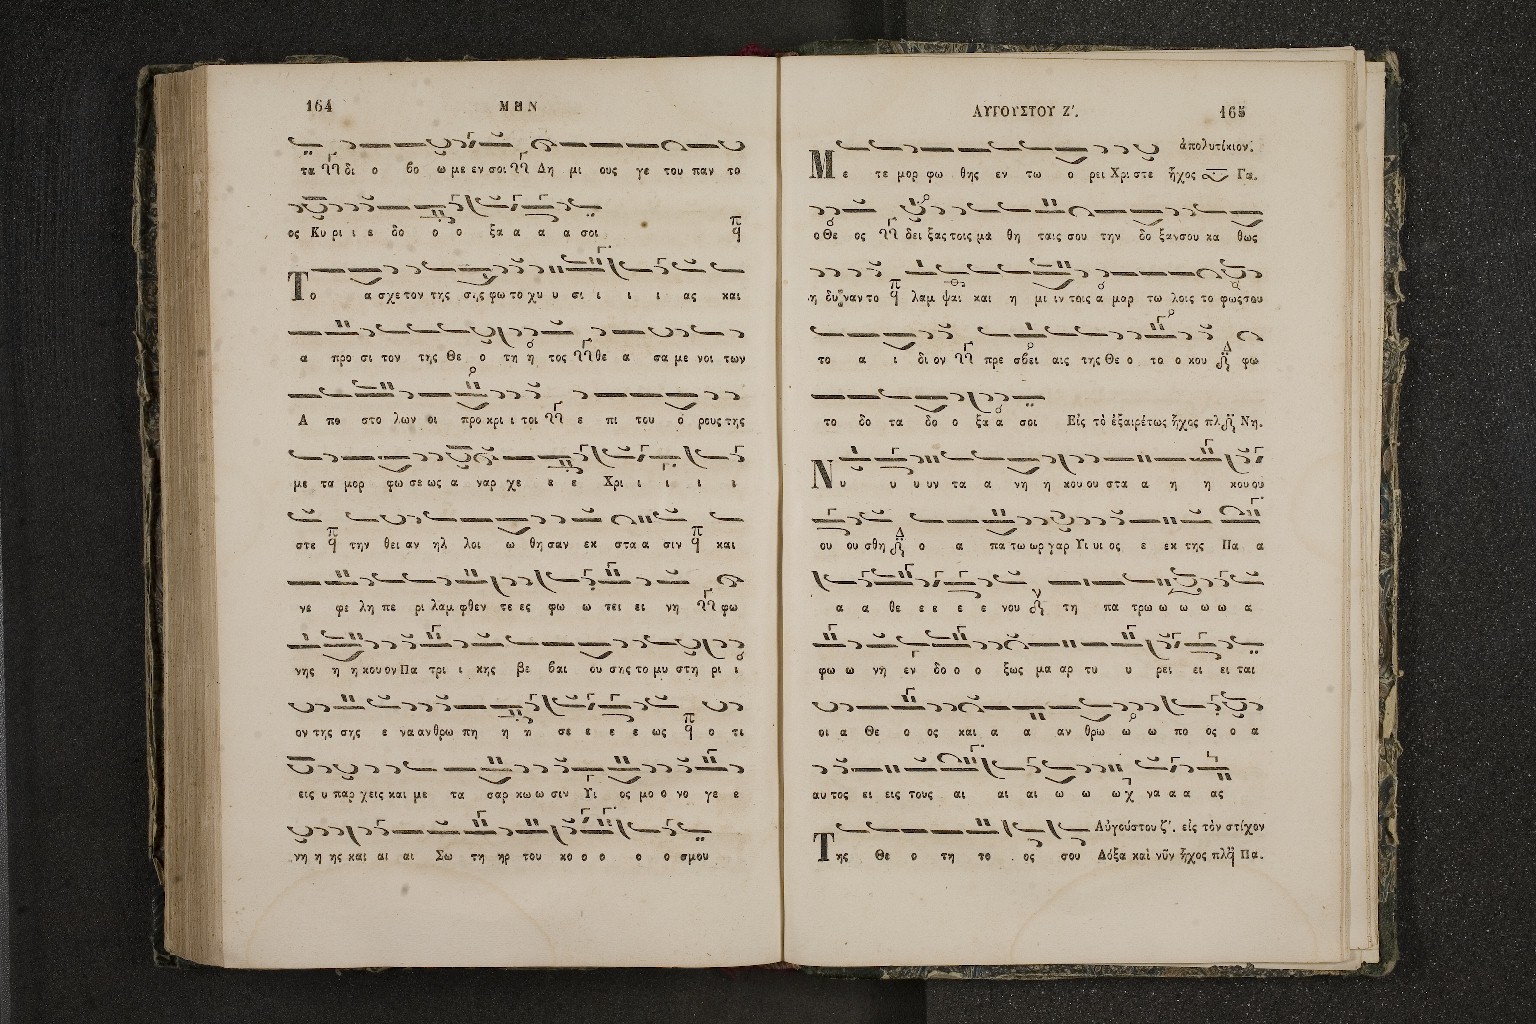 164 ΜΗΝ
τα δι ο βο ω με εν σοι Δη μι ους γε του παν το
ος Κυ ρι ι ε δο ο ο ξα α α α σοι
Το α σχε τον της σης φω το χυ υ σι ι ι ι ας και
α προ σι τον της Θε ο τη η τος θε α σα με νοι των
Α πο στο λων οι προ κρι ι τοι ε πι του ο ρους της
με τα μορ φω σε ως α ναρ χε ε ε Χρι ι ι ι ι
στε την θει αν ηλ λοι ω θη σαν εκ στα α σιν και
νε φε λη πε ρι λαμ φθεν τε ες φω ω τει ει νη φω
νης η η κου ον Πα τρι ι κης βε βαι ου σης το μυ στη ρι ι
ον της σης ε να αν θρω πη η η σε ε ε ε ως ο τι
εις υ παρ χεις και με τα σαρ κω ω σιν Υι ος μο ο νο γε ε
νη η ης και αι αι Σω τη ηρ του κο ο ο ο ο σμου
ΑΥΓΟΥΣΤΟΥ Ζ´. 165
ἀπολυτίκιον.
Με τε μορ φω θης εν τω ο ρει Χρι στε ἦχος Γα.
ο Θε ος δει ξας τοις μα θη ταις σου την δο ξαν σου κα θως
η δυ ναν το λαμ ψαι και η μι ιν τοις α μαρ τω λοις το φως σου
το α ι δι ον πρε σβει αις της Θε ο το ο κου φω
το δο τα δο ο ξα α σοι Εἰς τὸ ἐξαιρέτως ἦχος πλ Νη.
Νυ υ υ υν τα α νη η κου ου στα α η η κου ου
ου ου σθη ο α πα τω ωρ γαρ Υι υι ος ε εκ της Πα α
α α θε ε ε ε ε νου τη πα τρω ω ω ω ω α
φω ω νη εν δο ο ο ξως μα αρ τυ υ ρει ει ει ται
οι α Θε ο ος και α α αν θρω ω ω πο ος ο α
αυ τος ει εις τους αι αι αι ω ω ω να α ας
Αὐγούστου ζ´. εἰς τὸν στίχον
Της Θε ο τη το ος σου Δόξα καὶ νῦν ἦχος πλ Πα.